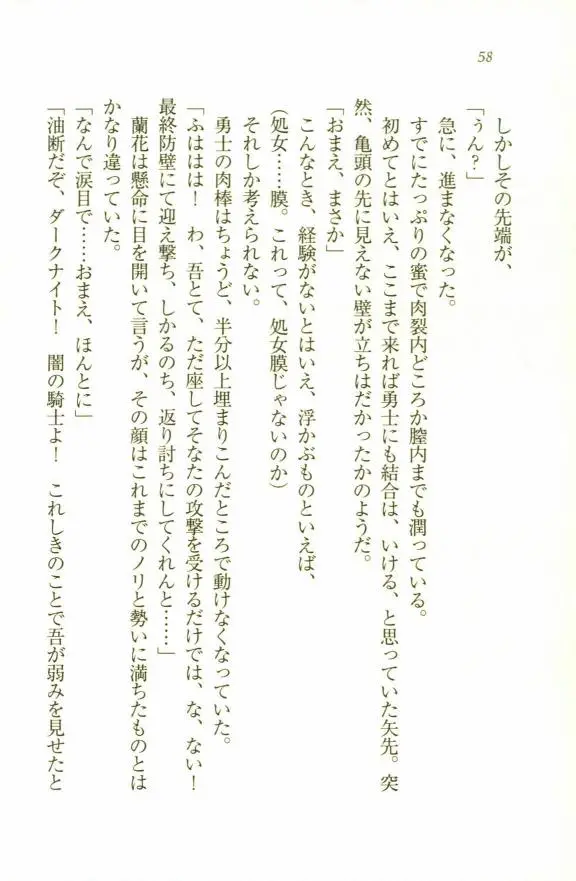 58
しかしその先端が、
「うん？」
急に、進まなくなった。
すでにたっぷりの蜜で肉裂内どころか膣内までも潤っている。
初めてとはいえ、ここまで来れば勇士にも結合は、いける、と思っていた矢先。突
然、亀頭の先に見えない壁が立ちはだかったかのようだ。
「おまえ、まさか」
こんなとき、経験がないとはいえ、浮かぶものといえば、
(処女……膜。これって、処女膜じゃないのか)
それしか考えられない。
勇士の肉棒はちょうど、半分以上埋まりこんだところで動けなくなっていた。
「ふははは！　わ、吾とて、ただ座してそなたの攻撃を受けるだけでは、な、ない！
最終防壁にて迎え撃ち、しかるのち、返り討ちにしてくれんと……」
蘭花は懸命に目を開いて言うが、その顔はこれまでのノリと勢いに満ちたものとは
かなり違っていた。
「なんで涙目で……おまえ、ほんとに」
「油断だぞ、ダークナイト！　闇の騎士よ！　これしきのことで吾が弱みを見せたと